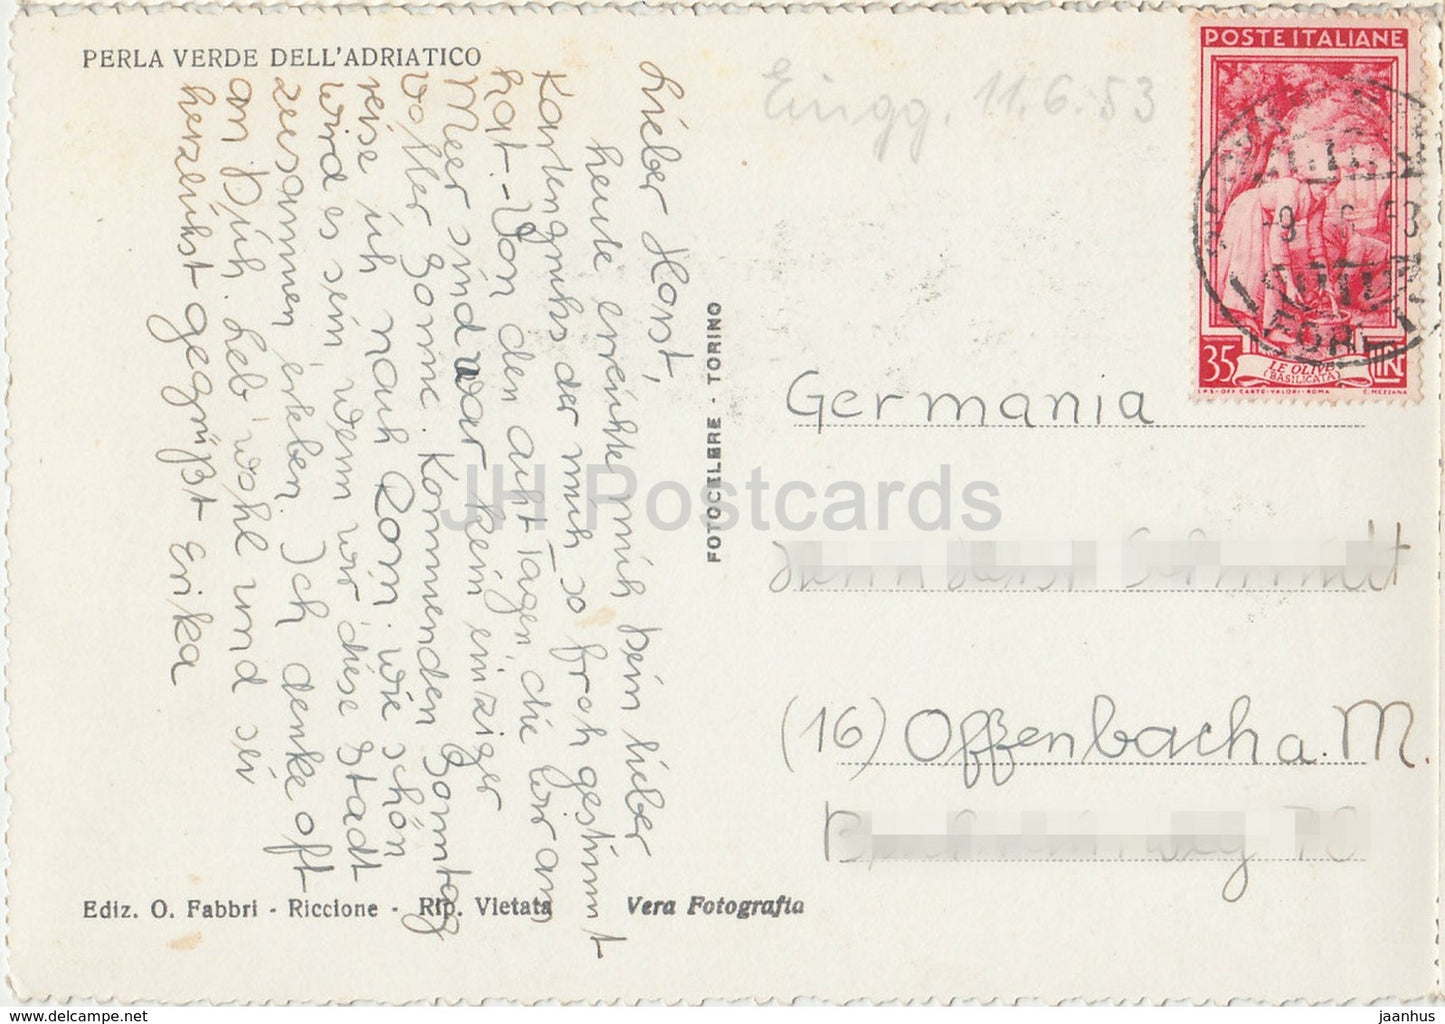 PERLA VERDE DELL'ADRIATICO
Lieber Horst,
heute erreichte mich Dein lieber
Kartengruß der mich so froh gestimmt
hat. - Von den acht Tagen, die wir am
Meer sind war kein einziger
voller Sonne. Kommenden Sonntag
reise ich nach Rom. wie schön
wird es sein, wenn wir diese Stadt
zusammen erleben. Ich denke oft
an Dich. Leb' wohl und sei
herzlichst gegrüßt Erika
Ediz. O. Fabbri - Riccione - Rip. Vietata
Vera Fotografia
FOTOCELERE - TORINO
Eingg. 11.6.53
POSTE ITALIANE
35 LIRE
LE OLIVE
(BASILICATA)
I.P.S-OFF.CARTE-VALORI-ROMA
C.MEZZANA
-9 6 53
Germania
(16) Offenbach a. M.
70
JH Postcards
www.delcampe.net
jaanhus